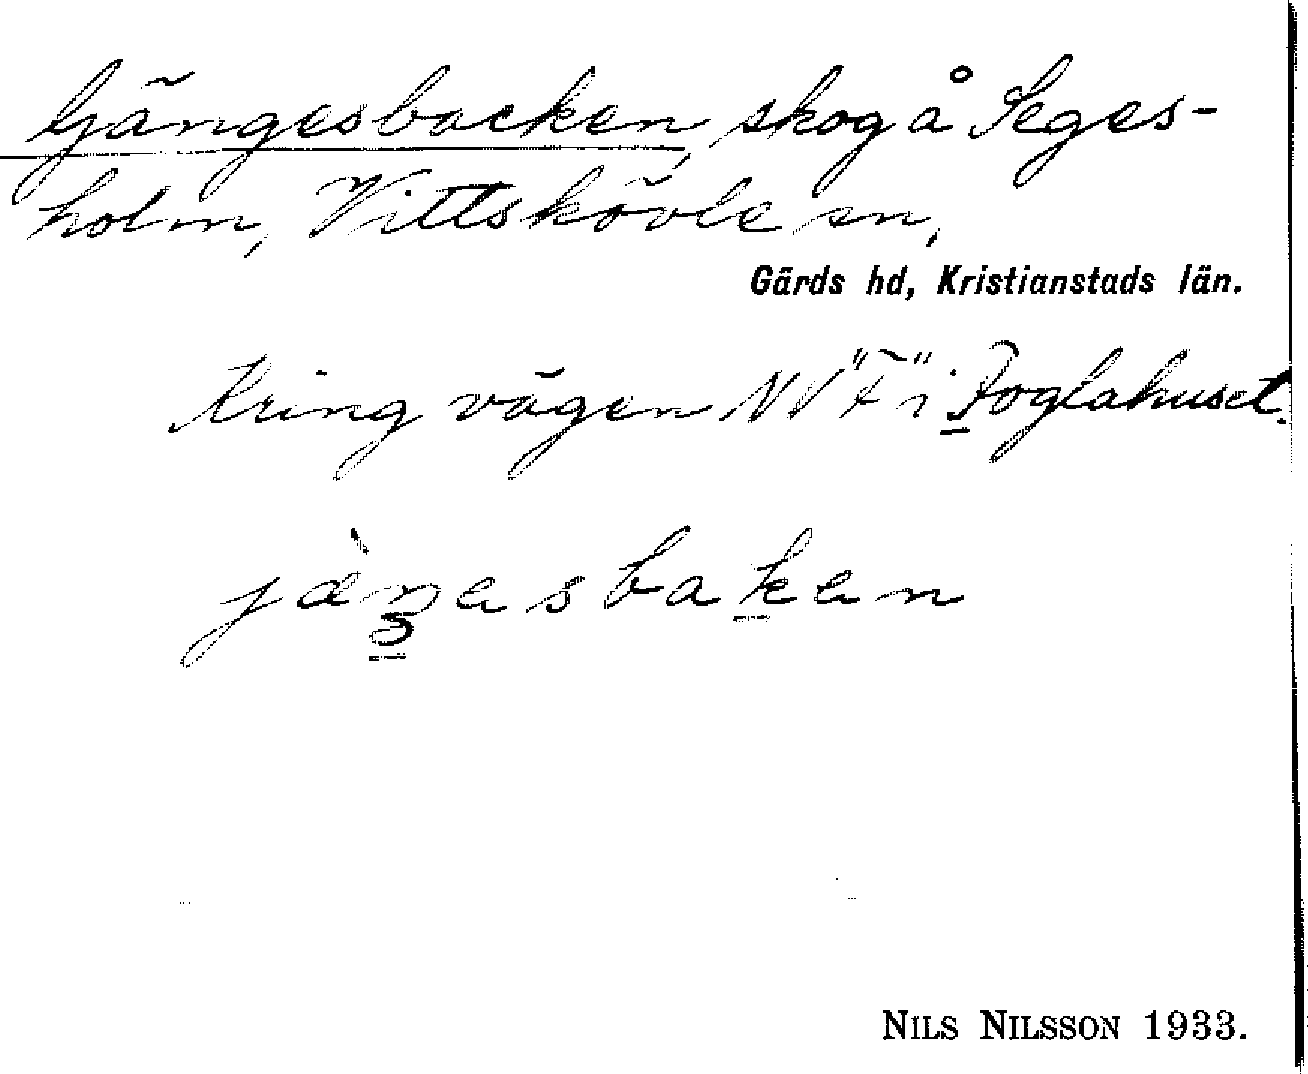 Gängesbacken, skog å Seges-
holm, Vittskövle sn,
Gärds hd, Kristianstads län.
Kring vägen NV "F" i Foglahuset.
jæ̀ŋesbaken
NILS NILSSON 1933.